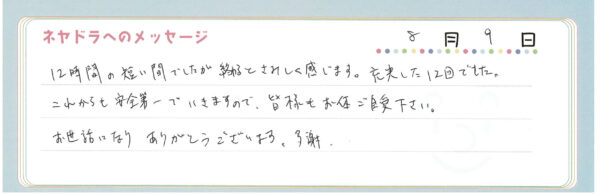 ネヤドラへのメッセージ
8月9日
12時間の短い間でしたが終わるとさみしく感じます。充実した12回でした。
これからも安全第一でいきますので、皆様もお体ご自愛下さい。
お世話になり ありがとうございます。多謝.